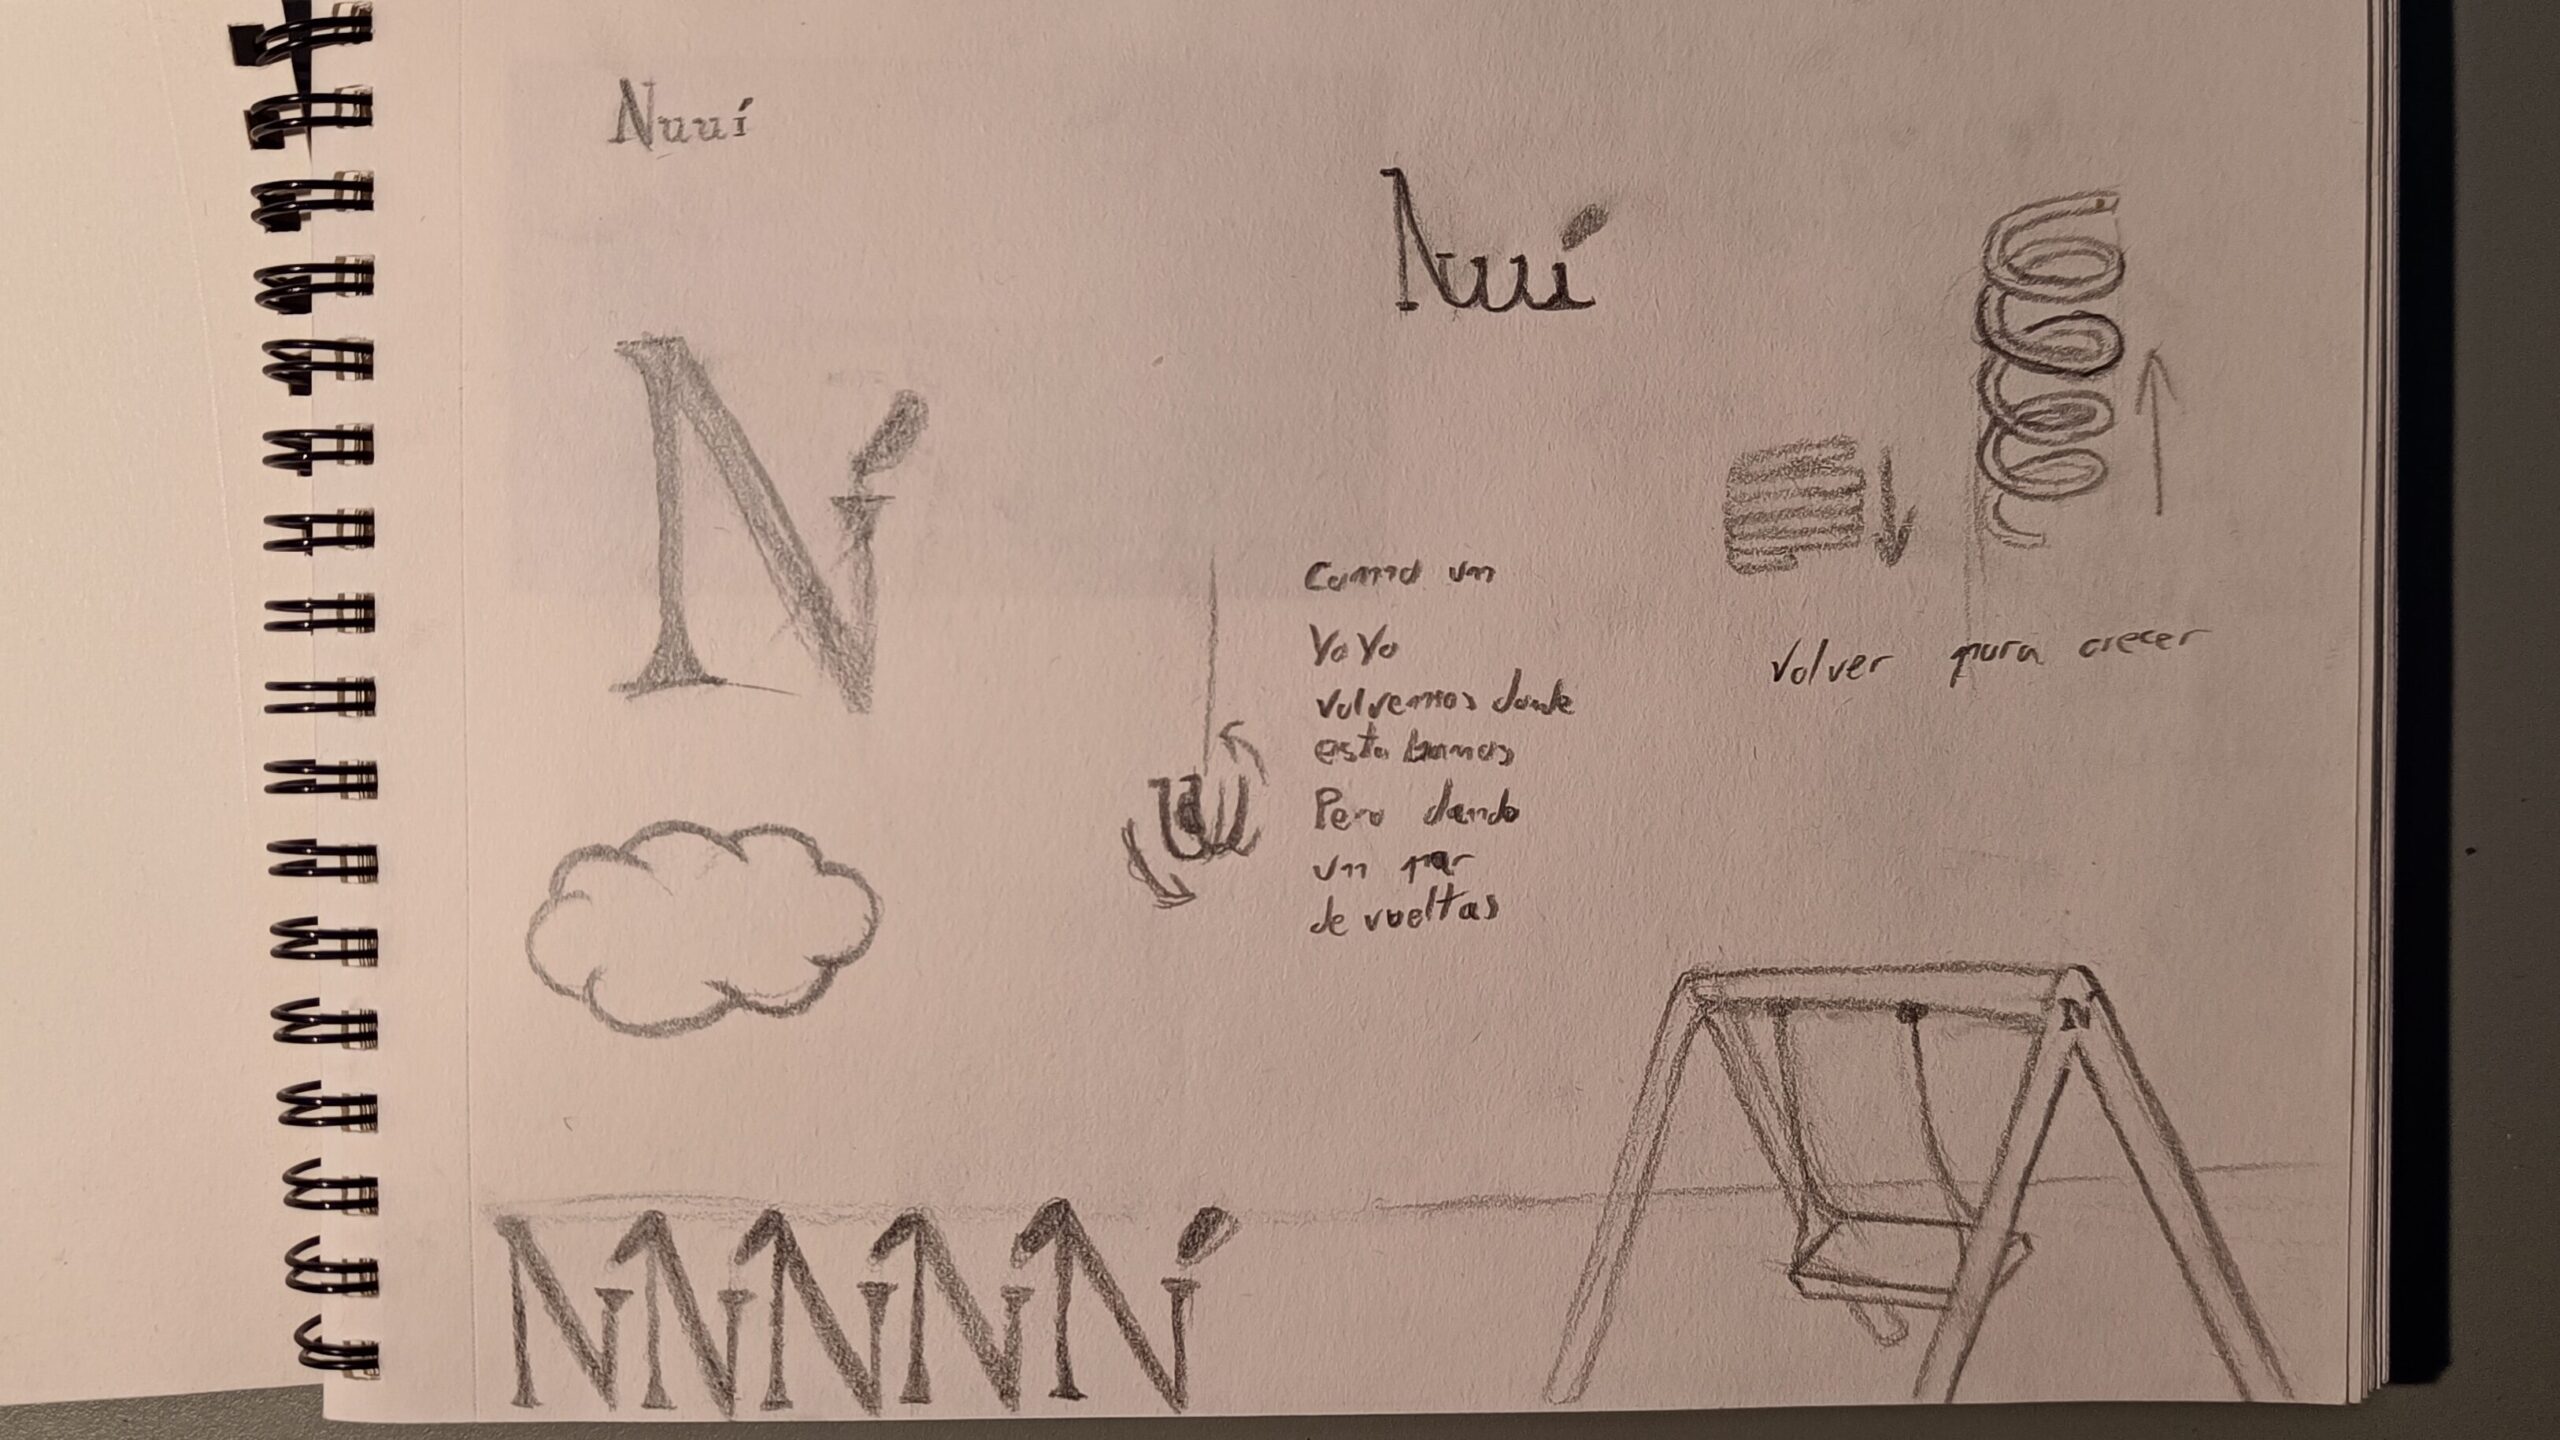 Nuuí
Nuuí
N
Como un
YoYo
volvemos donde
estabamos
Pero dando
un par
de vueltas
Volver para crecer
N
N N N N N